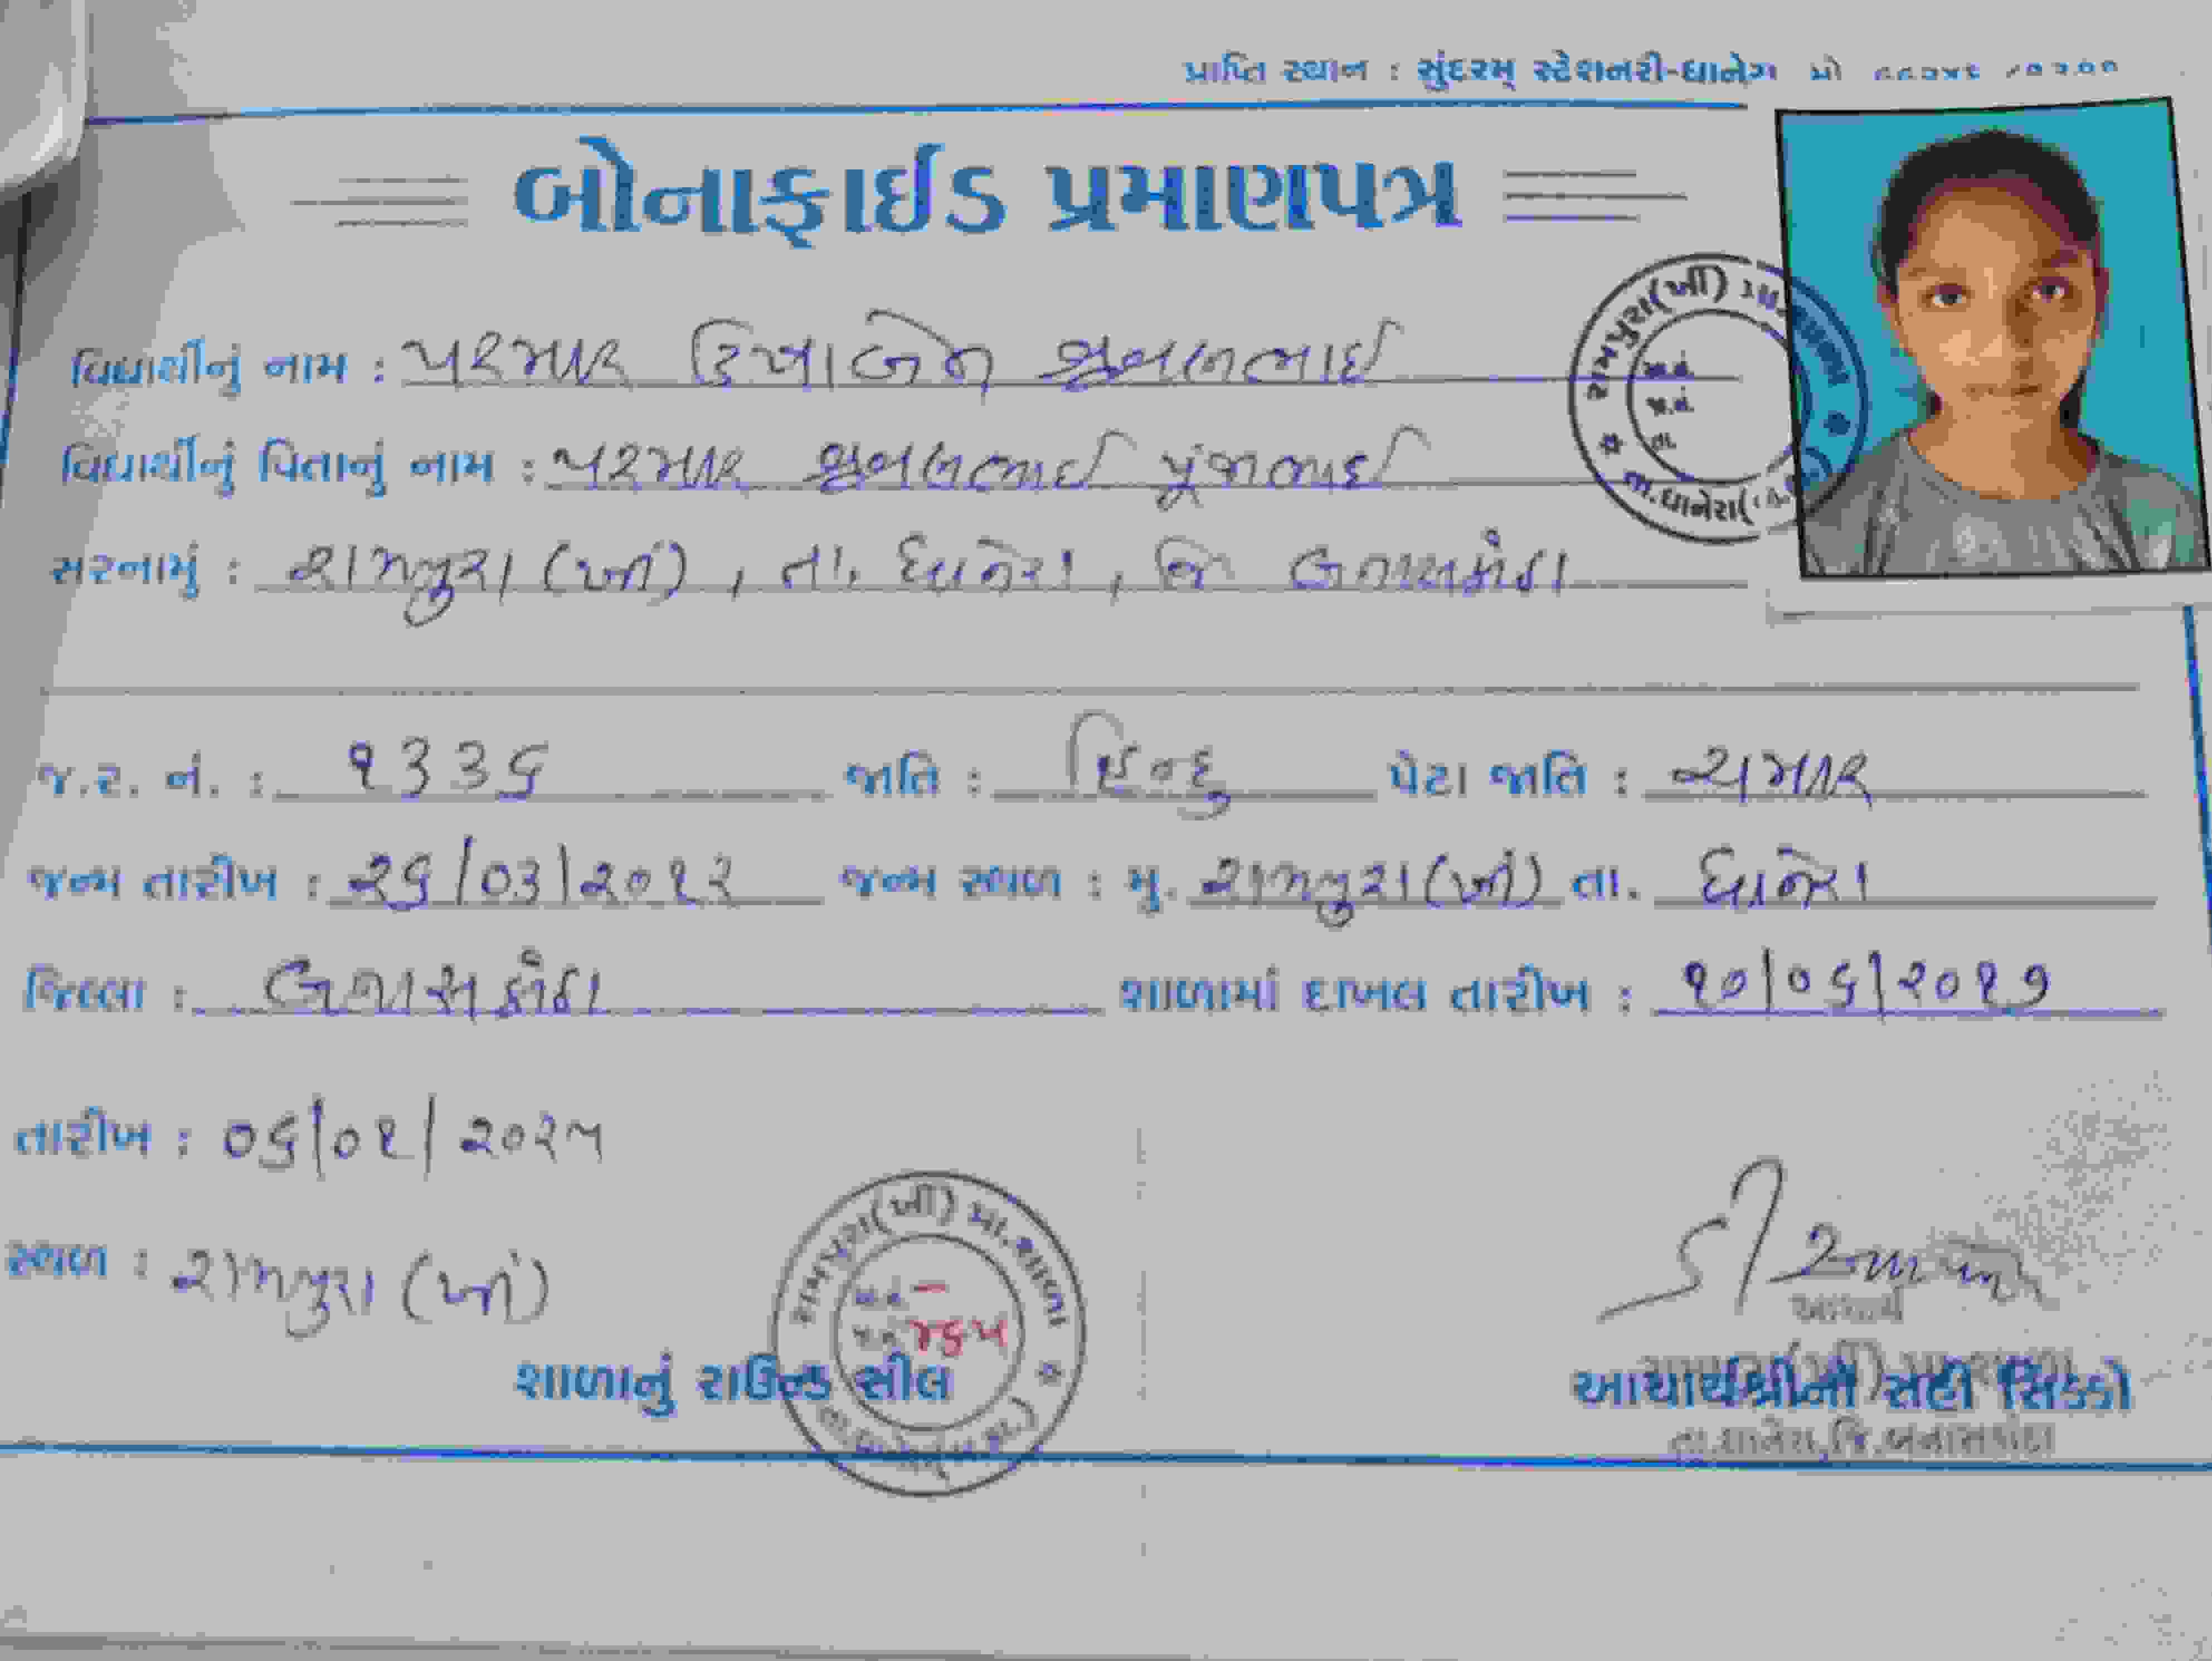 પ્રાપ્તિ સ્થાન : સુંદરમ્ સ્ટેશનરી-ધાનેરા મો
બોનાફાઈડ પ્રમાણપત્ર
વિદ્યાર્થીનું નામ : પરમાર
વિદ્યાર્થીનું પિતાનું નામ : પરમાર પુંજાભાઈ
સરનામું : રામપુરા (ખીં) , તા. ધાનેરા , જિ બનાસકાંઠા
રામપુરા(ખીં)
તા.ધાનેરા
જ.ર. નં. : ૧૩૩૬ જાતિ : હિન્દુ પેટા જાતિ : ચમાર
જન્મ તારીખ : ૨૬/૦૩/૨૦૧૨ જન્મ સ્થળ : મુ. રામપુરા (ખીં) તા. ધાનેરા
જિલ્લા : બનાસકાંઠા શાળામાં દાખલ તારીખ : ૧૦/૦૬/૨૦૧૭
તારીખ : ૦૬/૦૧/૨૦૨૫
સ્થળ : રામપુરા (ખીં)
રામપુરા(ખીં) પ્રા.શાળા
૨૬૫
શાળાનું રાઉન્ડ સીલ
આચાર્ય
આચાર્યશ્રીની સહી સિક્કો
તા.ધાનેરા,જિ.બનાસકાંઠા